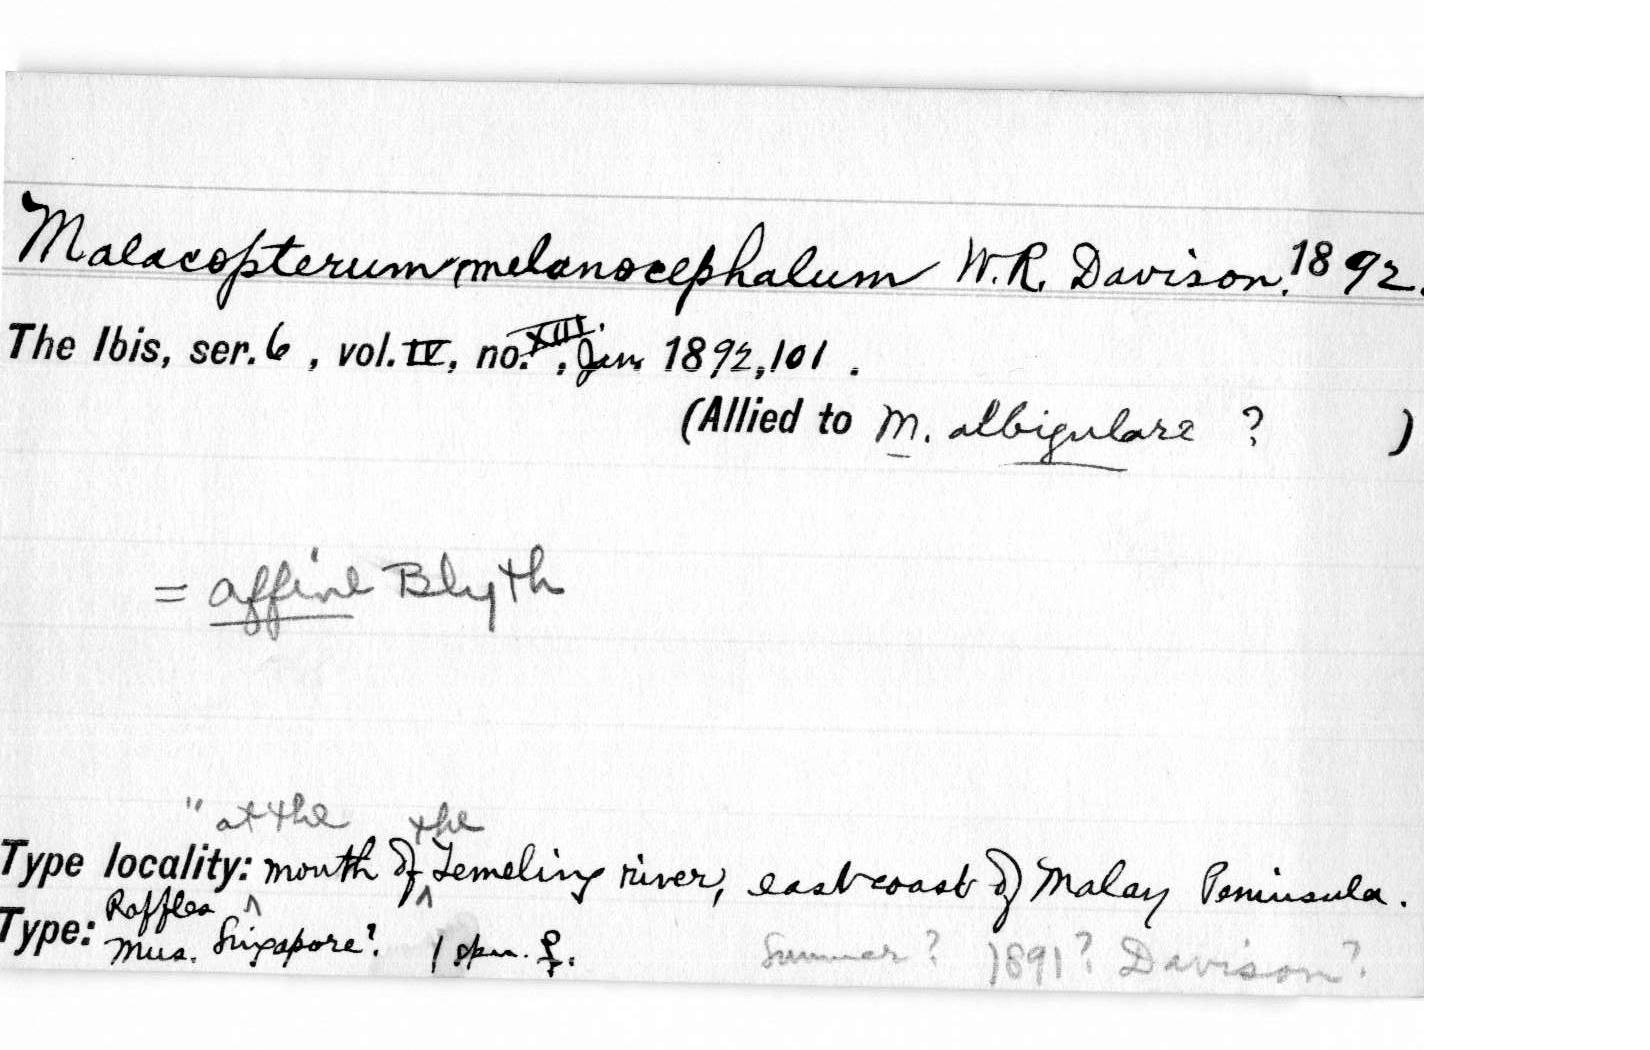 Malacopterum melanocephalum W.R. Davison. 1892.
The Ibis, ser. 6 , vol. IV, no. XIII. , Jan. 1892, 101 .
(Allied to M. albigulare ? )
= affine Blyth
" at the the
Type locality: mouth of Temeling river, east coast of Malay Peninsula.
Raffles
Type: Mus. Singapore? 1 spm. ♀. Summer? 1891? Davison?